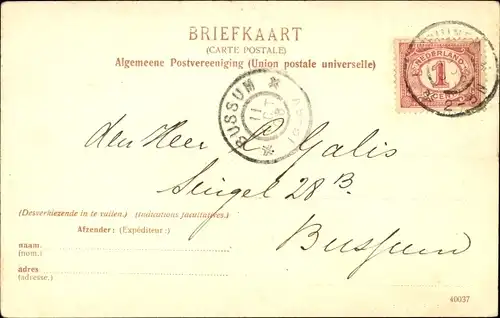 BRIEFKAART
(CARTE POSTALE)
Algemeene Postvereeniging (Union postale universelle)
NEDERLAND
1
CENT
BUSSUM
den Heer C Galis
Singel 28 B.
Bussum
(Desverkiezende in te vullen.) (Indications facultatives.)
Afzender: (Expéditeur:)
naam.
(nom.)
adres
(adresse.)
40037